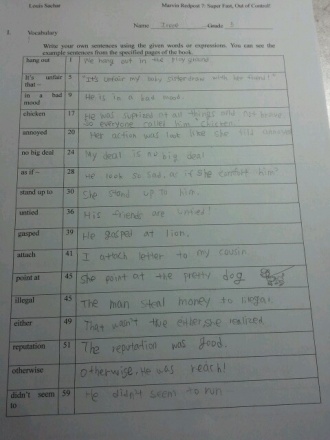 Louis Sachar Marvin Redpost 7: Super Fast, Out of Control!
Name Grade
I. Vocabulary
Write your own sentences using the given words or expressions. You can see the
example sentences from the specified pages of the book.
hang out 1 We hang out in the play ground
It's unfair that ~ 5 "It's unfair my baby with her friend!"
in a bad mood 9 He is in a bad mood.
chicken 17 He was surprised at all things and not brave
So everyone called him "chicken".
annoyed 20 Her action was look like she
no big deal 24 My deal is no big deal
as if ~ 28 He look so sad, as if she comfort him"
stand up to 30 She stand up to him.
untied 36 His friends are untied!
gasped 39 He gasped at lion.
attach 41 I attach letter to my cousin
point at 45 She point at the pretty dog
illegal 45 The man steal money to illegal.
either 49 That wasn't true either, she realized.
reputation 51 The reputation was good.
otherwise otherwise, He was reach!
didn't seem to 59 He didn't seem to run